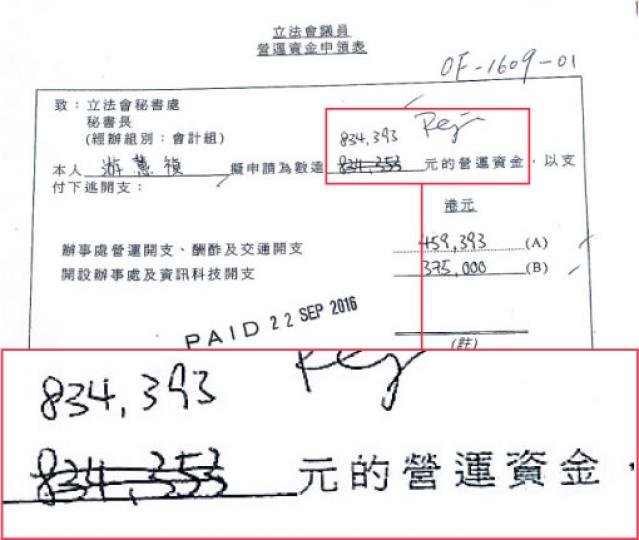 立法會議員
營運資金申領表
OF-1609-01
致：立法會秘書處
秘書長
(經辦組別：會計組)
834,393
本人 游蕙禎 擬申請為數達 834,353 元的營運資金，以支
付下述開支：
港元
辦事處營運開支、酬酢及交通開支 459,393 (A)
開設辦事處及資訊科技開支 375,000 (B)
PAID 22 SEP 2016
(註)
834,393
834,353 元的營運資金，